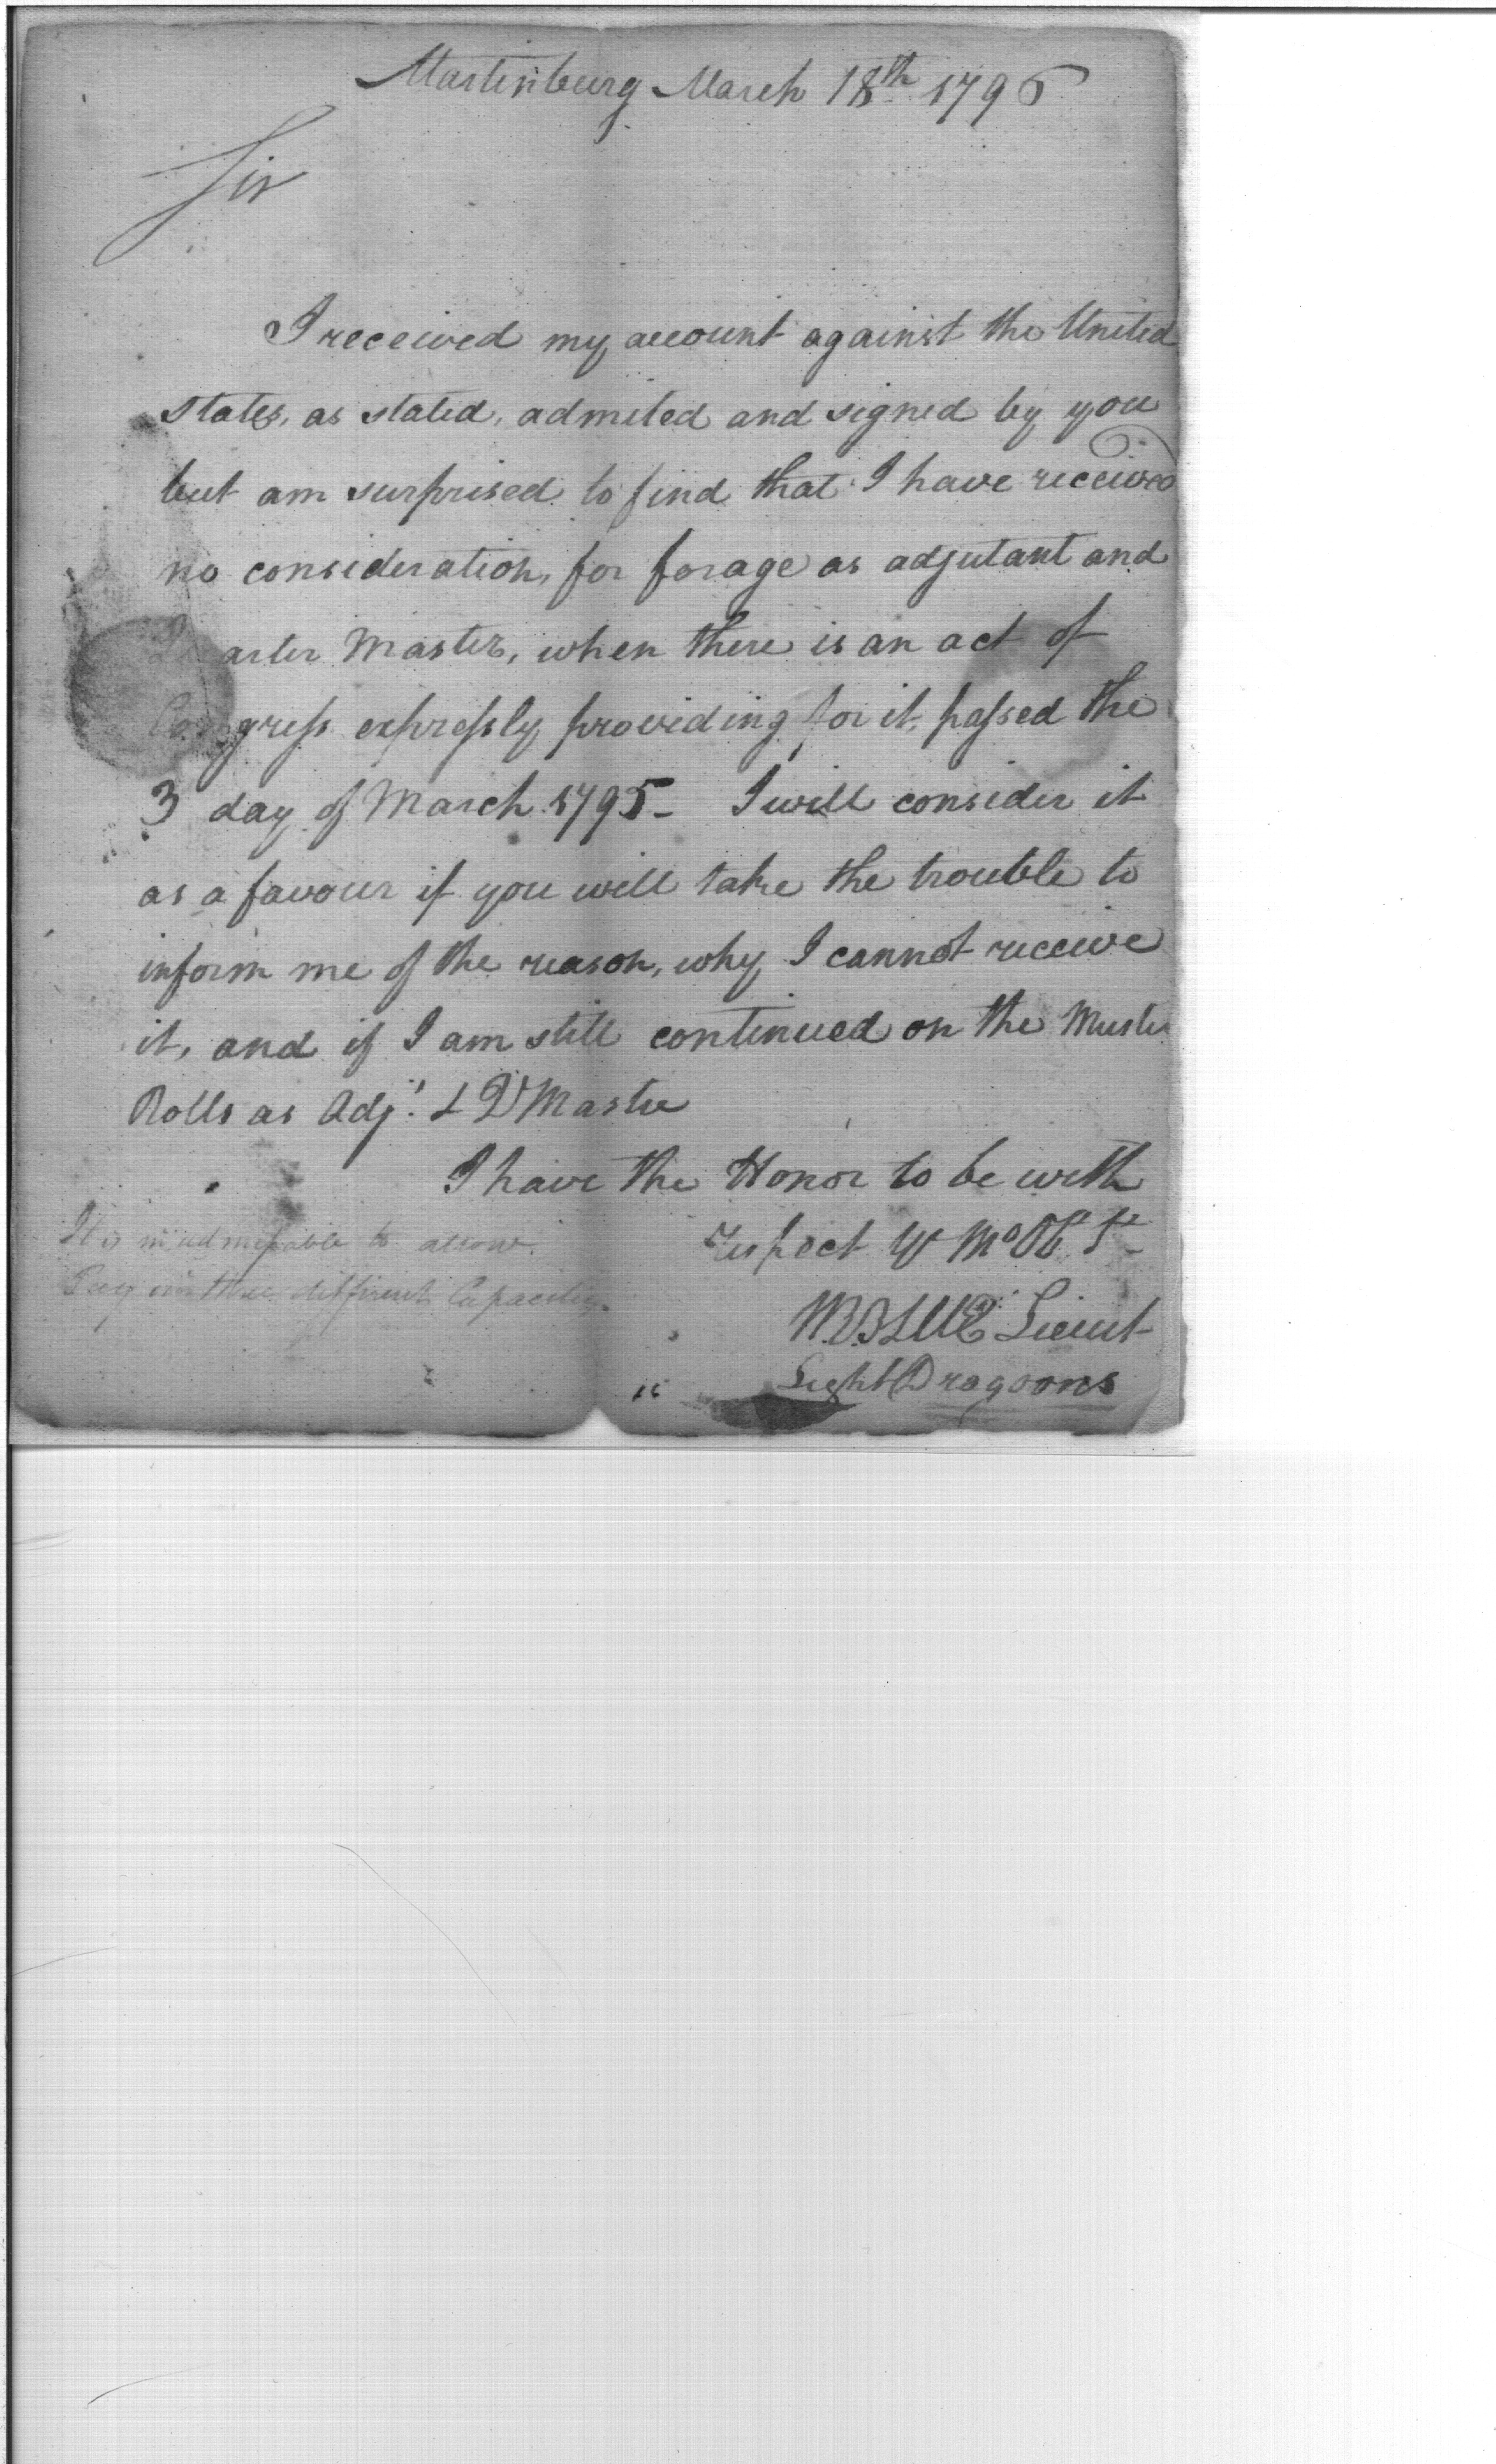 Martinburg March 18th 1796
Sir
I received my account against the United
States, as stated, admited and signed by you
but am surprised to find that I have received
no consideration, for forage as adjutant and
Quarter Master, when there is an act of
Congress expressly providing for it, passed the
3 day of March 1795 - I will consider it
as a favour if you will take the trouble to
inform me of the reason, why I cannot receive
it, and if I am still continued on the Muster
Rolls as Adj.t & Qr Master
I have the Honor to be with
respect Yr Mo Ob. St
It is inadmissable to allow
Pay in three different Capacities
W. BLUE Lieut
Light Dragoons